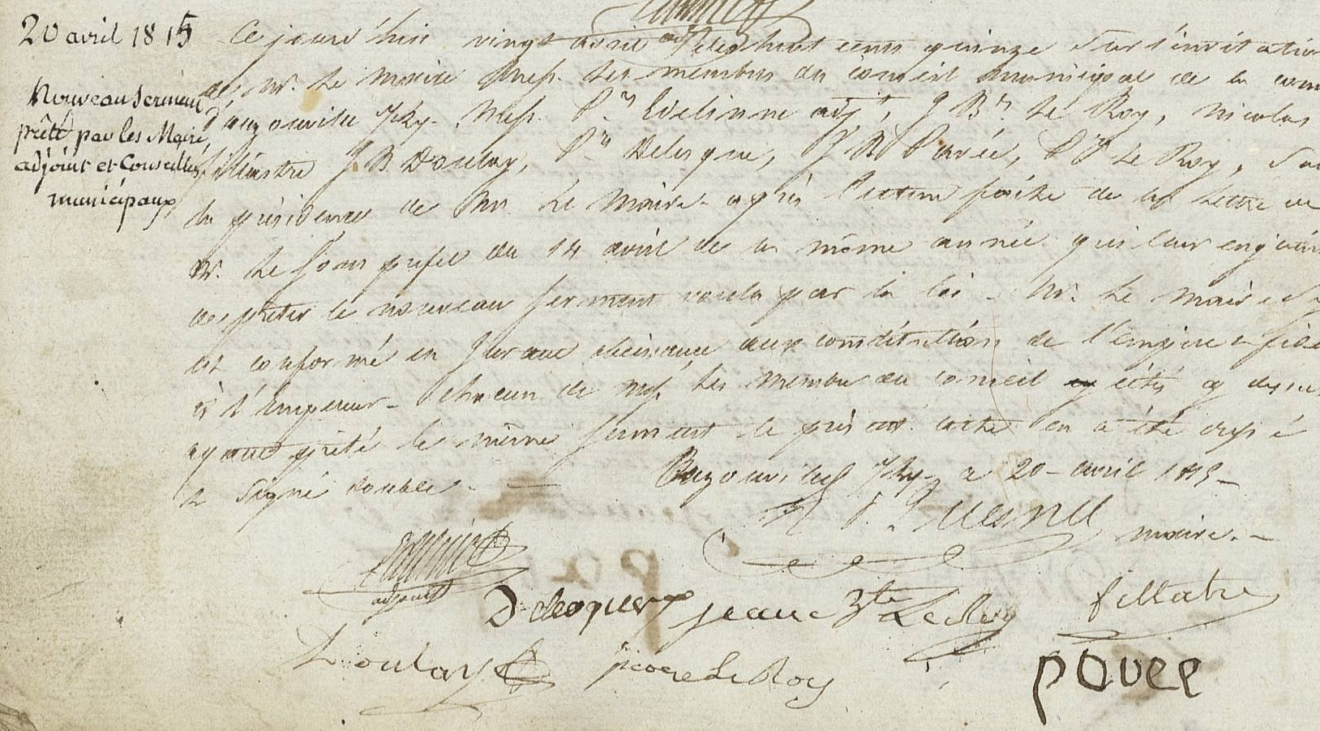 20 avril 1815
Nouveau Serment
prêté par les Maire,
adjoint et Conseillers
municipaux
Ce jourd'hui vingt avril mil huit cents quinze Sur l'invitation
de Mr. Le Maire Mess. Les membres du conseil municipal de la com
Mess. P.re adjt, J Bte Le Roy, nicolas
fillastre J B Doulay, P.re Delesque, J B Povée, P.re Le Roy, Sou
la présidence de Mr. Le Maire. après lecture faite de la lettre de
Mr. Le Sous préfet du 14 avril de la même année qui leur enjoint
de prêter le nouveau Serment voulu par la loi - Mr. Le Maire S'y
est conformé en Jurant obéissance aux constitutions de l'empire & fidé
à l'Empereur - chacun de Mess. Les membres du conseil cités cy dessus
ayant prêté le même Serment le présent acte en a été dressé
& Signé double -
à 20 - avril 1815 -
maire. -
adjoint
Delesque jean Bte Le Roy fillatre
Doulay pierre Le Roy povee